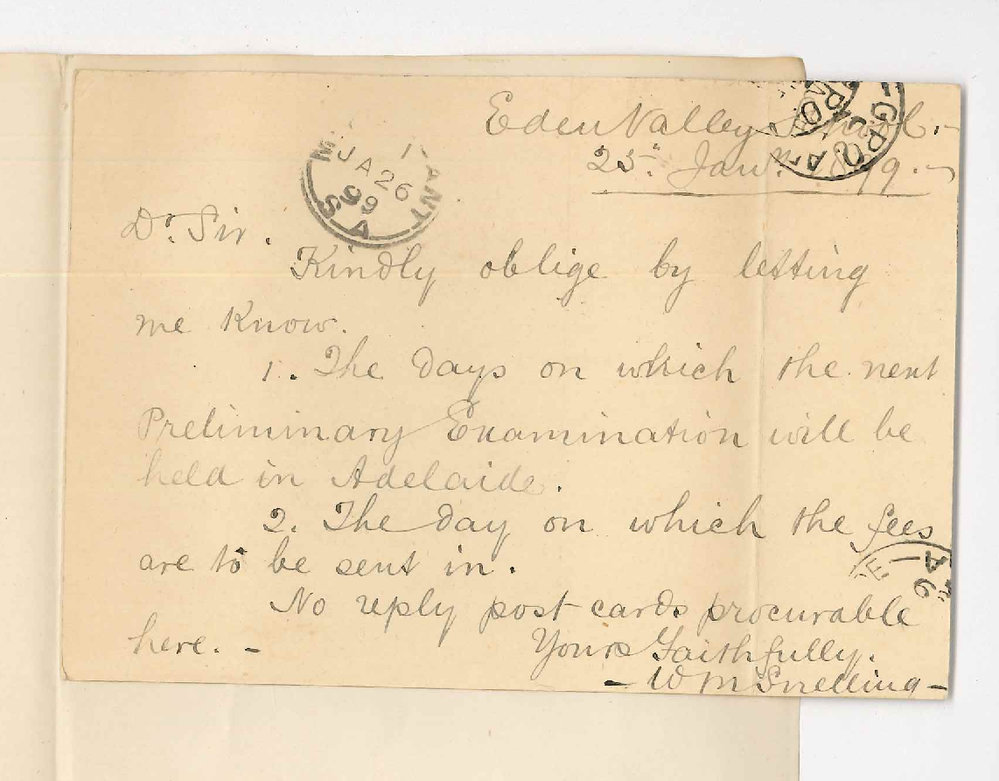 Eden Valley
25th Jany. 1899. -
JA 26
99
S A
GPO
Dr. Sir.
Kindly oblige by letting
me know.
1. The days on which the next
Preliminary Examination will be
held in Adelaide.
2. The day on which the fees
are to be sent in.
No reply post cards procurable
here. -
Yours Faithfully.
- Wm Snelling -